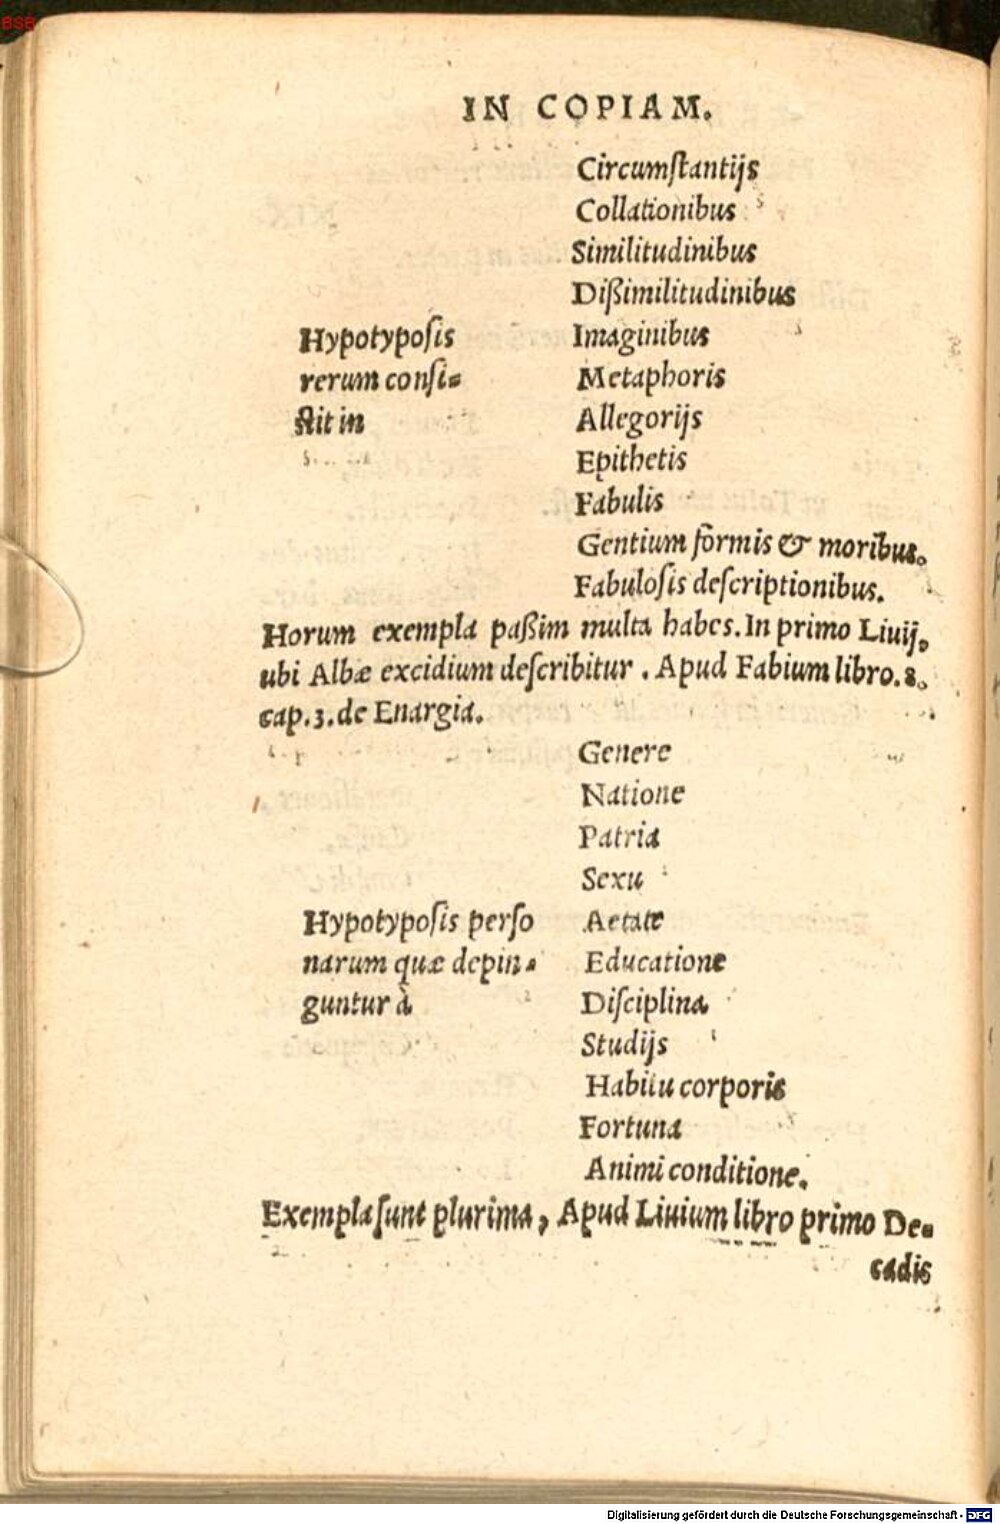 BSB
IN COPIAM.
Circumſtantijs
Collationibus
Similitudinibus
Dißimilitudinibus
Hypotypoſis Imaginibus
rerum conſi= Metaphoris
ſtit in Allegorijs
Epithetis
Fabulis
Gentium formis & moribus.
Fabuloſis deſcriptionibus.
Horum exempla paßim multa habes. In primo Liuij,
ubi Albæ excidium deſcribitur. Apud Fabium libro. 8.
cap. 3. de Enargia.
Genere
Natione
Patria
Sexu
Hypotypoſis perſo Aetate
narum quæ depin= Educatione
guntur à Diſciplina
Studijs
Habitu corporis
Fortuna
Animi conditione.
Exempla ſunt plurima, Apud Liuium libro primo De=
cadis
Digitalisierung gefördert durch die Deutsche Forschungsgemeinschaft - DFG